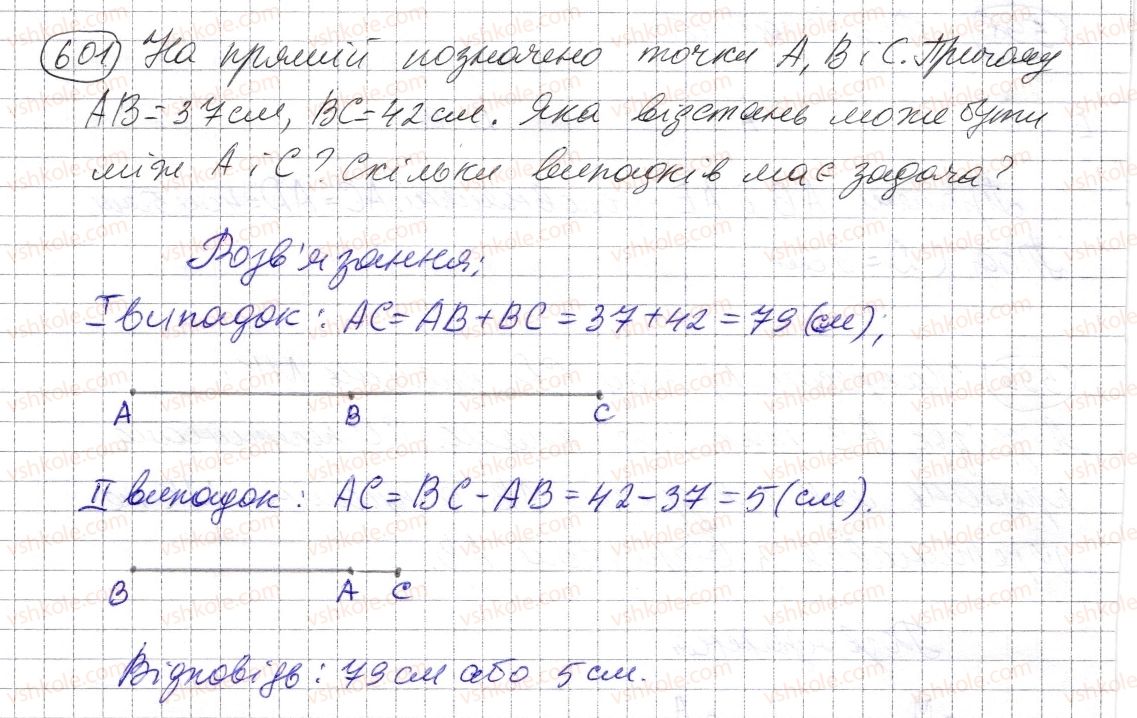 601 На прямій позначено точки A, B і C. Причому
AB = 37 см, BC = 42 см. Яка відстань може бути
між A і C? Скільки випадків має задача?
Розв'язання:
I випадок: AC = AB + BC = 37 + 42 = 79 (см);
A B C
II випадок: AC = BC - AB = 42 - 37 = 5 (см).
B A C
Відповідь: 79 см або 5 см.
vshkole.com